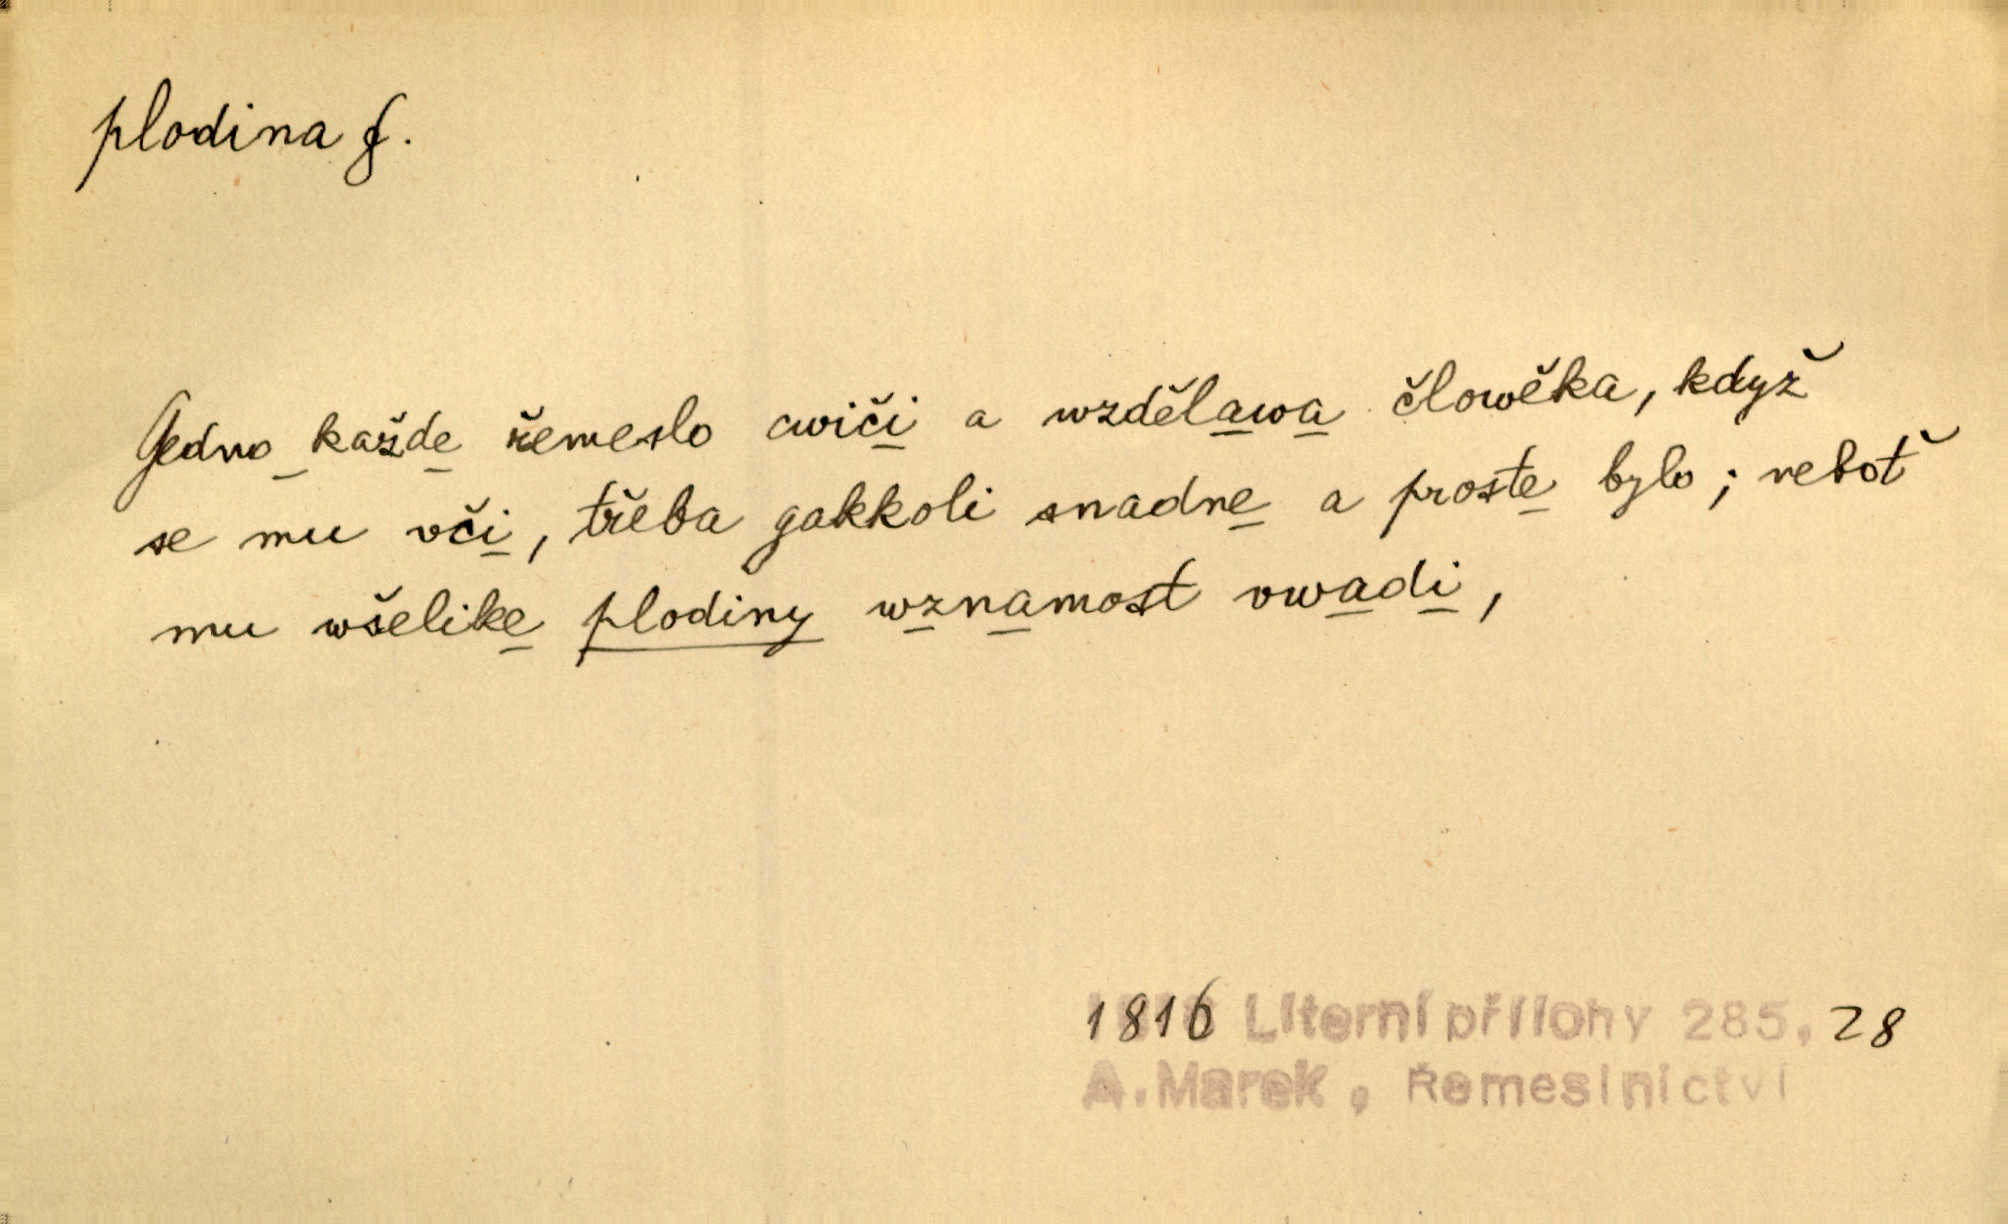 plodina f.
Gedno každe řemeslo cwiči a wzdělawa člowěka, když
se mu vči, třeba gakkoli snadne a proste bylo; neboť
mu wšelike plodiny wznamost vwadi,
1816 Literní přílohy 285, 28
A. Marek, Řemeslnictví